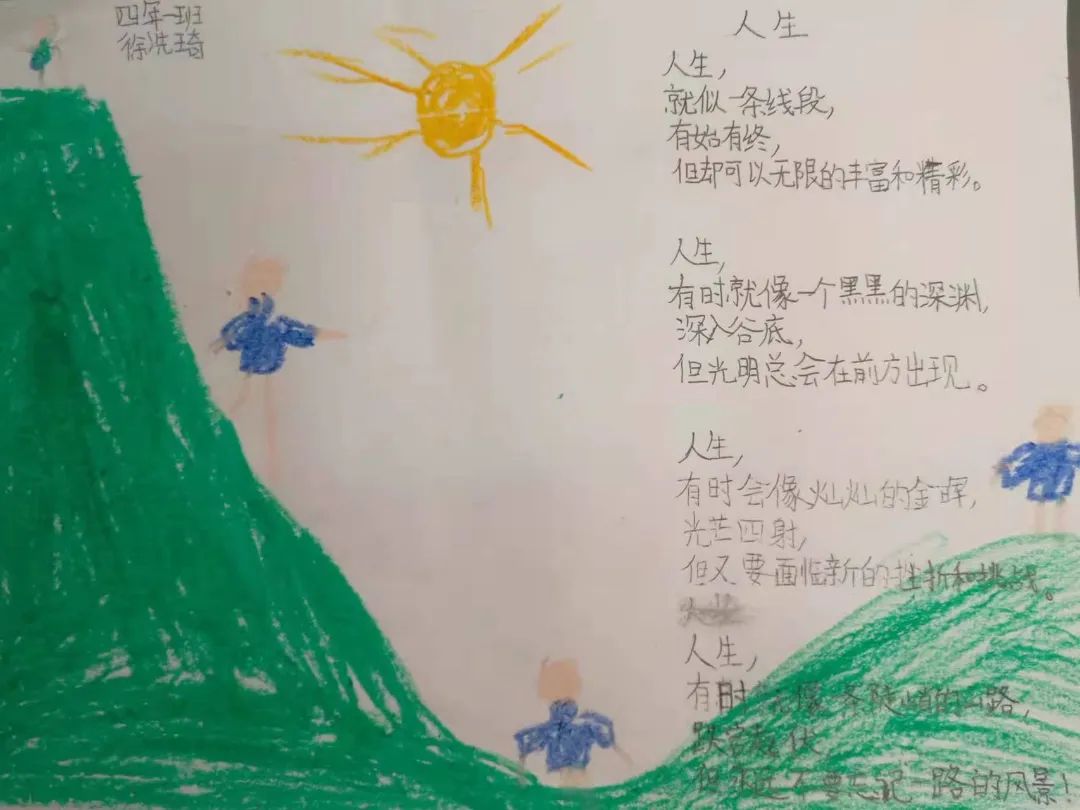 四年一班
徐洗琦
人生
人生，
就似一条线段，
有始有终，
但却可以无限的丰富和精彩。
人生，
有时就像一个黑黑的深渊，
深入谷底，
但光明总会在前方出现。
人生，
有时会像灿灿的金晖，
光芒四射，
但又要面临新的挫折和挑战。
人生，
有时像条陡峭的山路，
跌宕起伏
但永远不要忘记一路的风景！